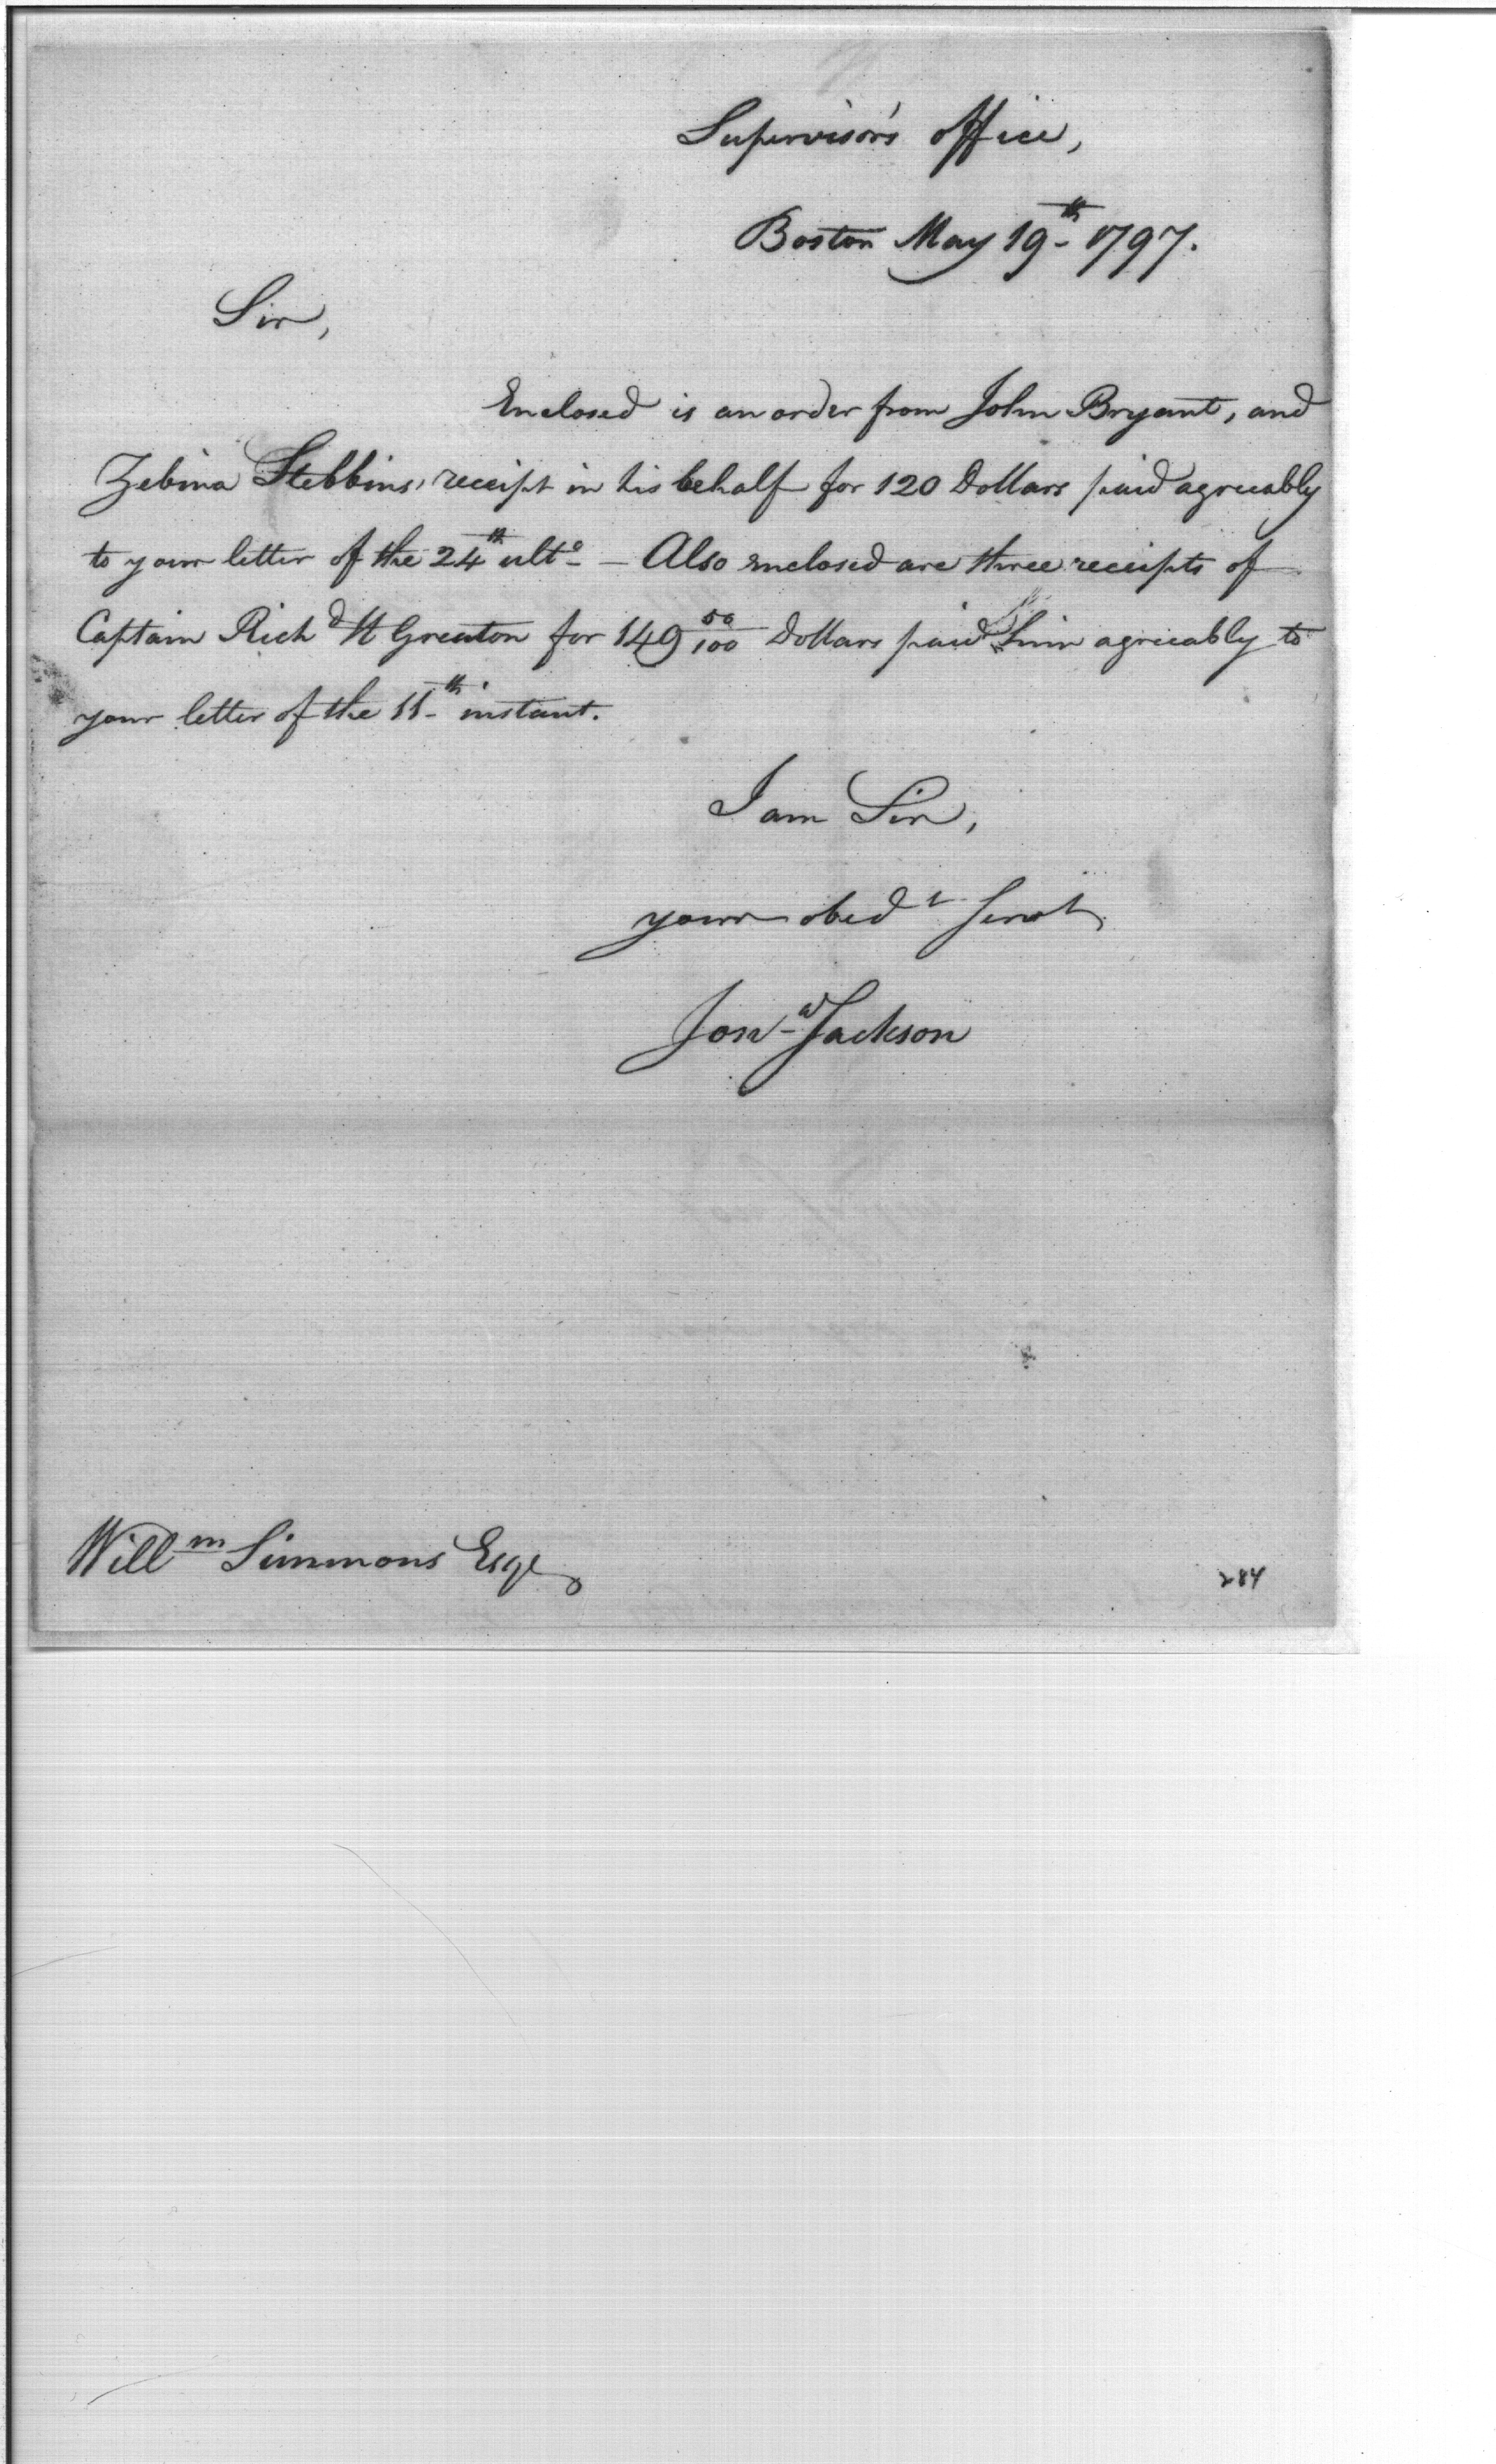 Supervisor's office,
Boston May 19th 1797.
Sir,
Enclosed is an order from John Bryant, and
Zebina Stebbins' receipt in his behalf for 120 Dollars paid agreeably
to your letter of the 24th ulto — Also enclosed are three receipts of
Captain Richd H Greaton for 149 50/100 Dollars paid him agreeably to
your letter of the 11th instant.
I am Sir,
your obedt Servt
Jona Jackson
Willm Simmons Esqr
284